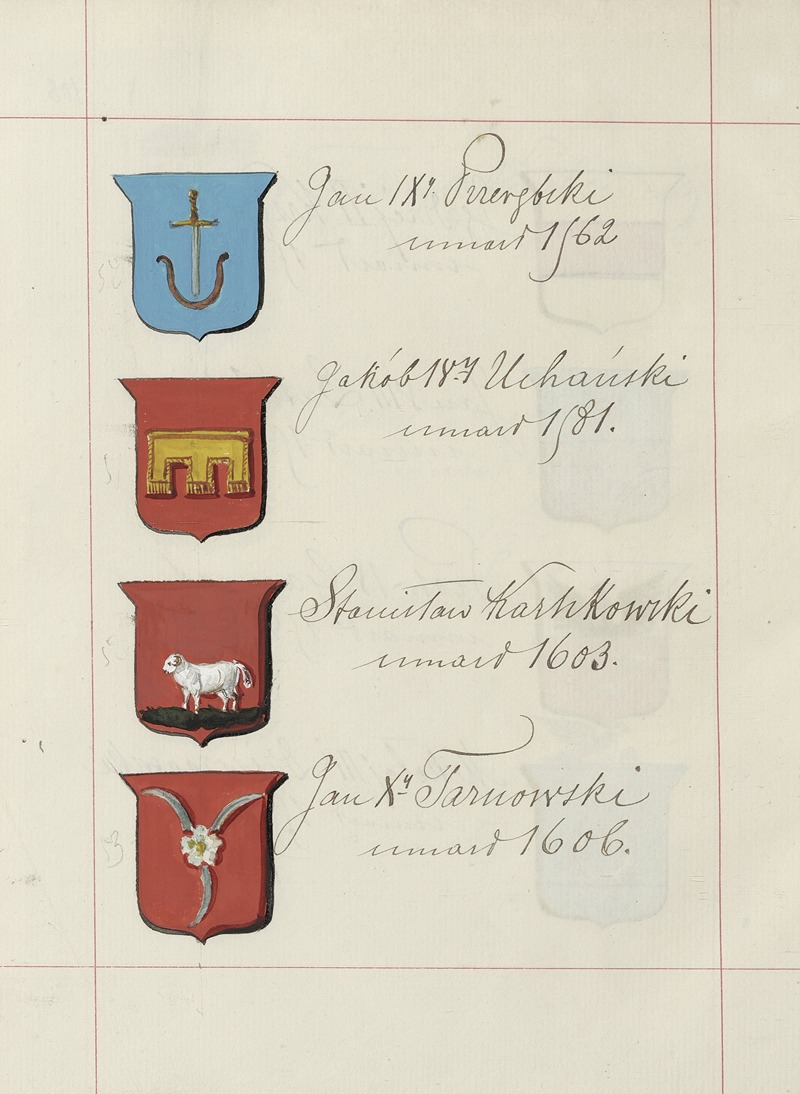 Jan IXy. Przerębski
umarł 1562
Jakób 1szy Uchański
umarł 1581.
Stanisław Karnkowski
umarł 1603.
Jan Xy Tarnowski
umarł 1606.